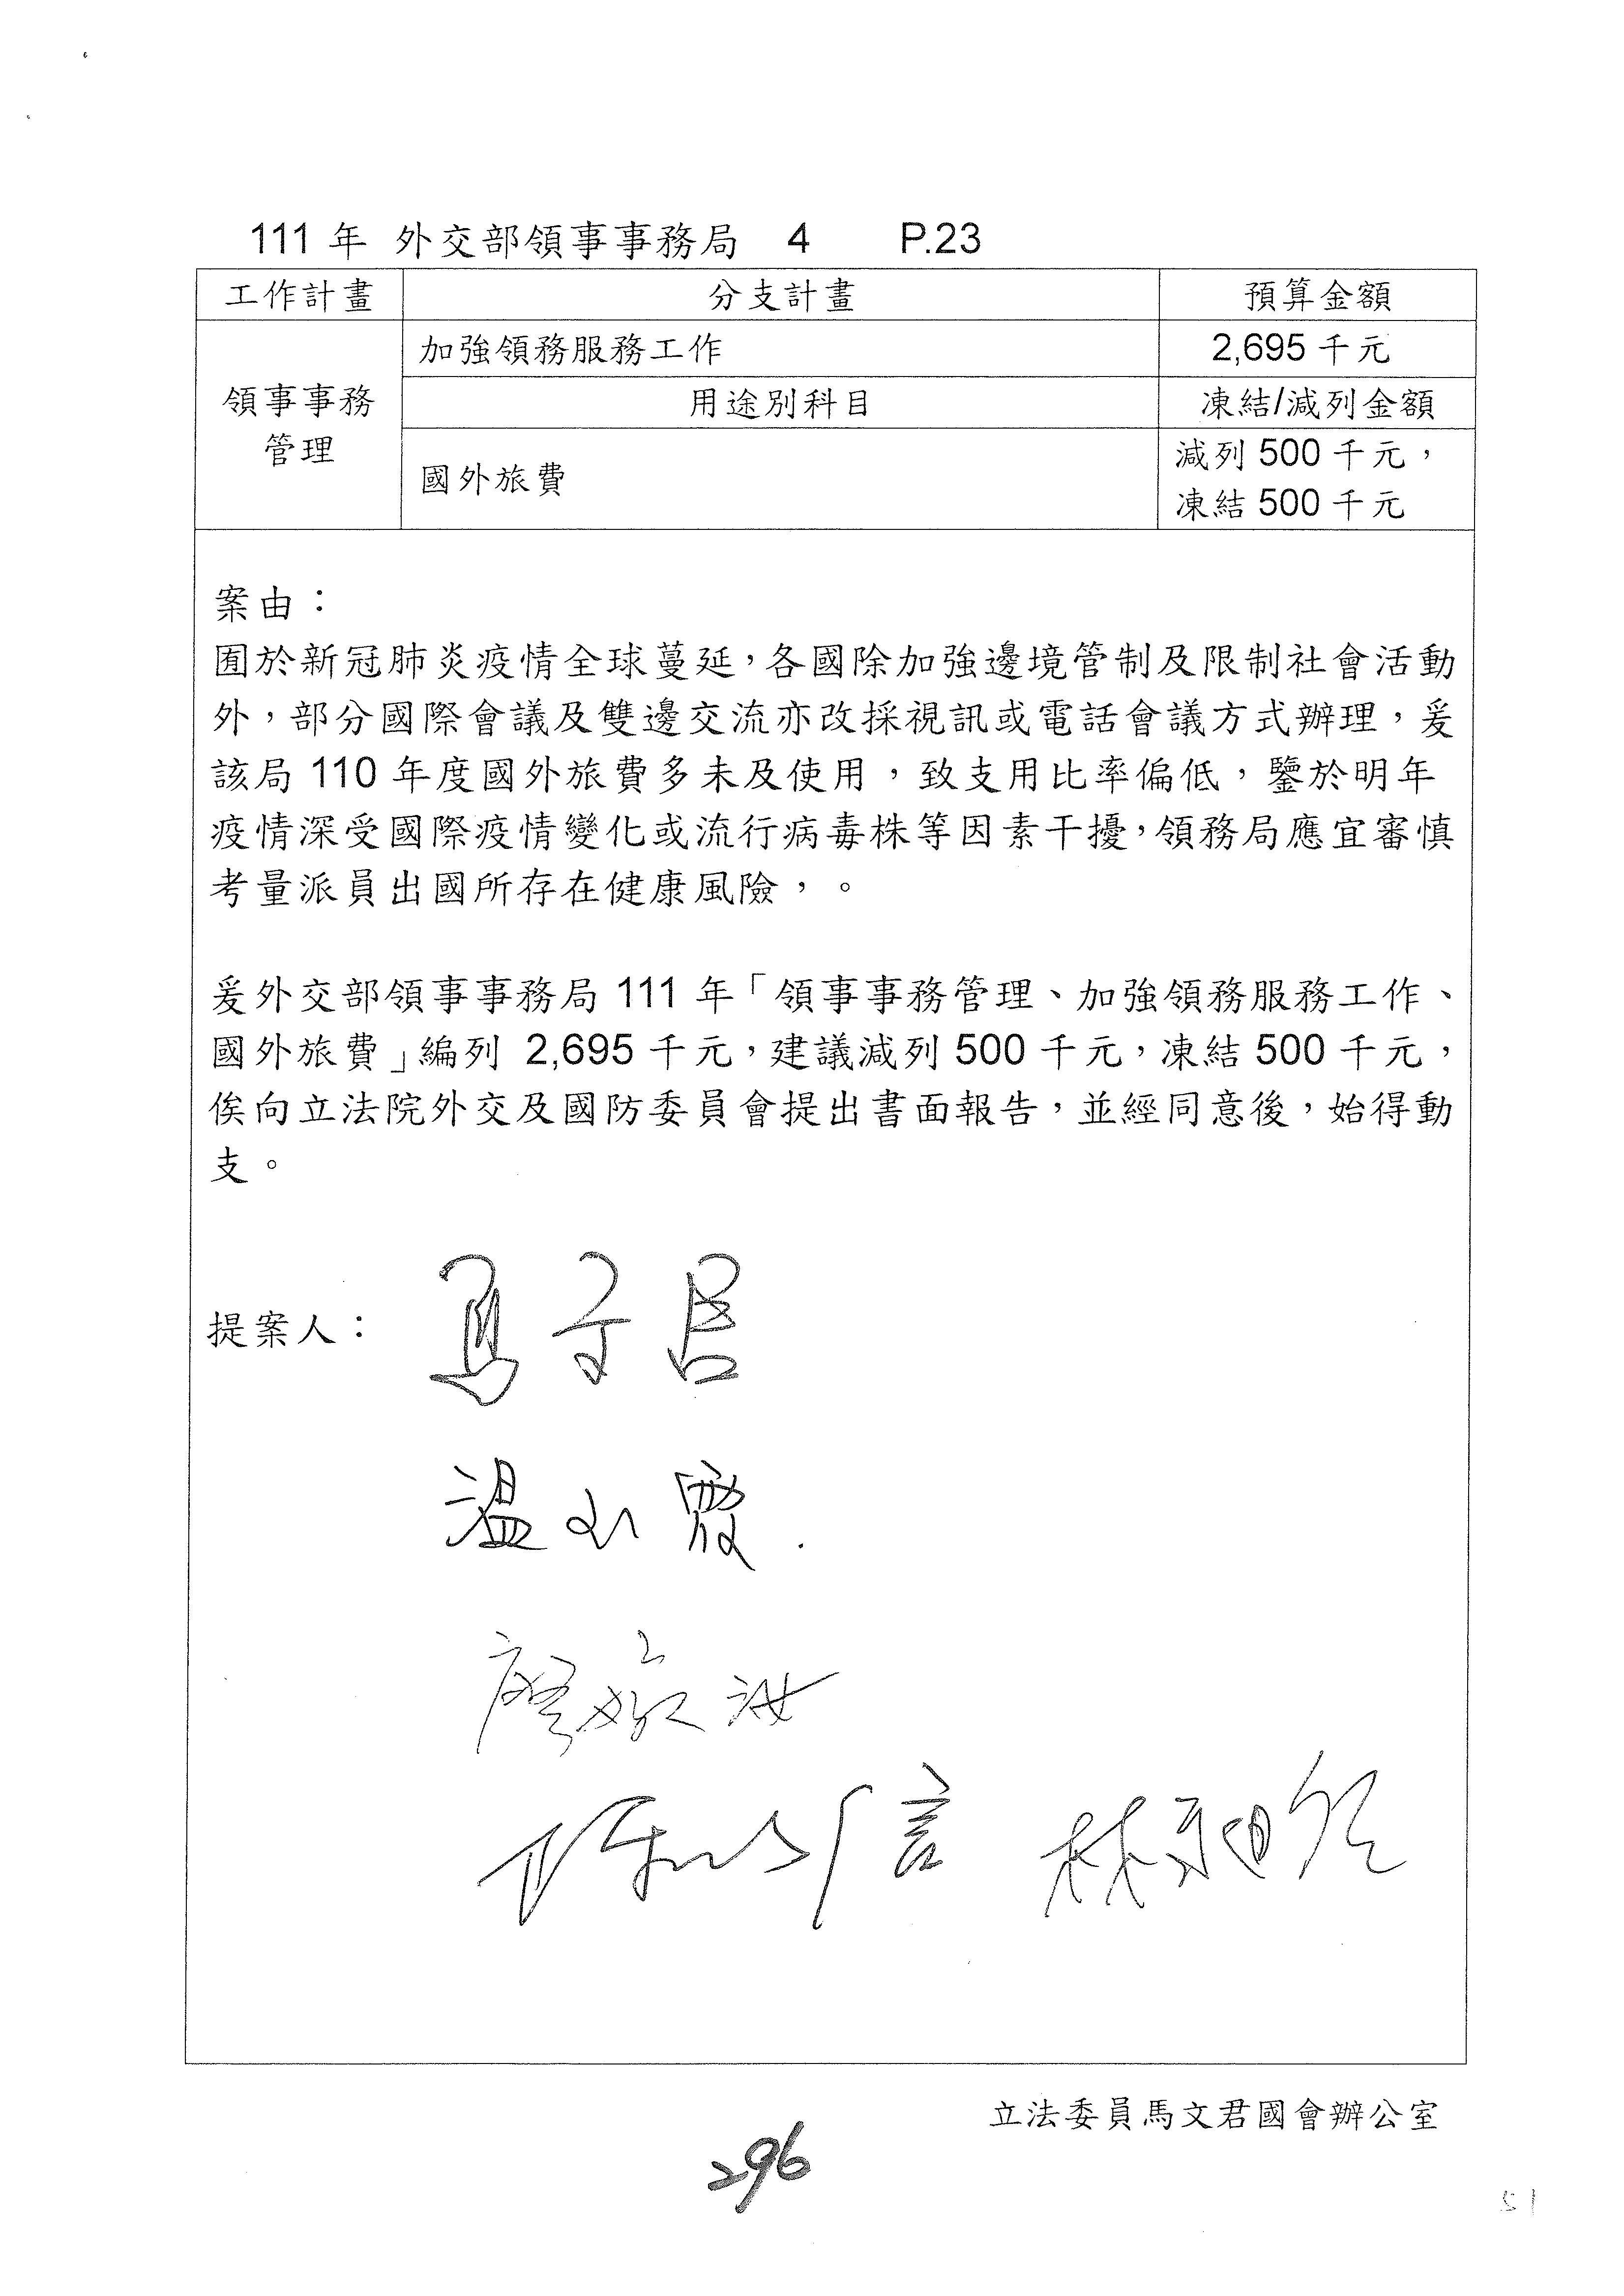 111 年 外交部領事事務局 4 P.23
工作計畫 分支計畫 預算金額
領事事務管理 加強領務服務工作 2,695 千元
用途別科目 凍結/減列金額
國外旅費 減列 500 千元，
凍結 500 千元
案由：
囿於新冠肺炎疫情全球蔓延，各國除加強邊境管制及限制社會活動
外，部分國際會議及雙邊交流亦改採視訊或電話會議方式辦理，爰
該局 110 年度國外旅費多未及使用，致支用比率偏低，鑒於明年
疫情深受國際疫情變化或流行病毒株等因素干擾，領務局應宜審慎
考量派員出國所存在健康風險，。
爰外交部領事事務局 111 年「領事事務管理、加強領務服務工作、
國外旅費」編列 2,695 千元，建議減列 500 千元，凍結 500 千元，
俟向立法院外交及國防委員會提出書面報告，並經同意後，始得動
支。
提案人：
馬文君
溫玉霞
陳以信
立法委員馬文君國會辦公室
296